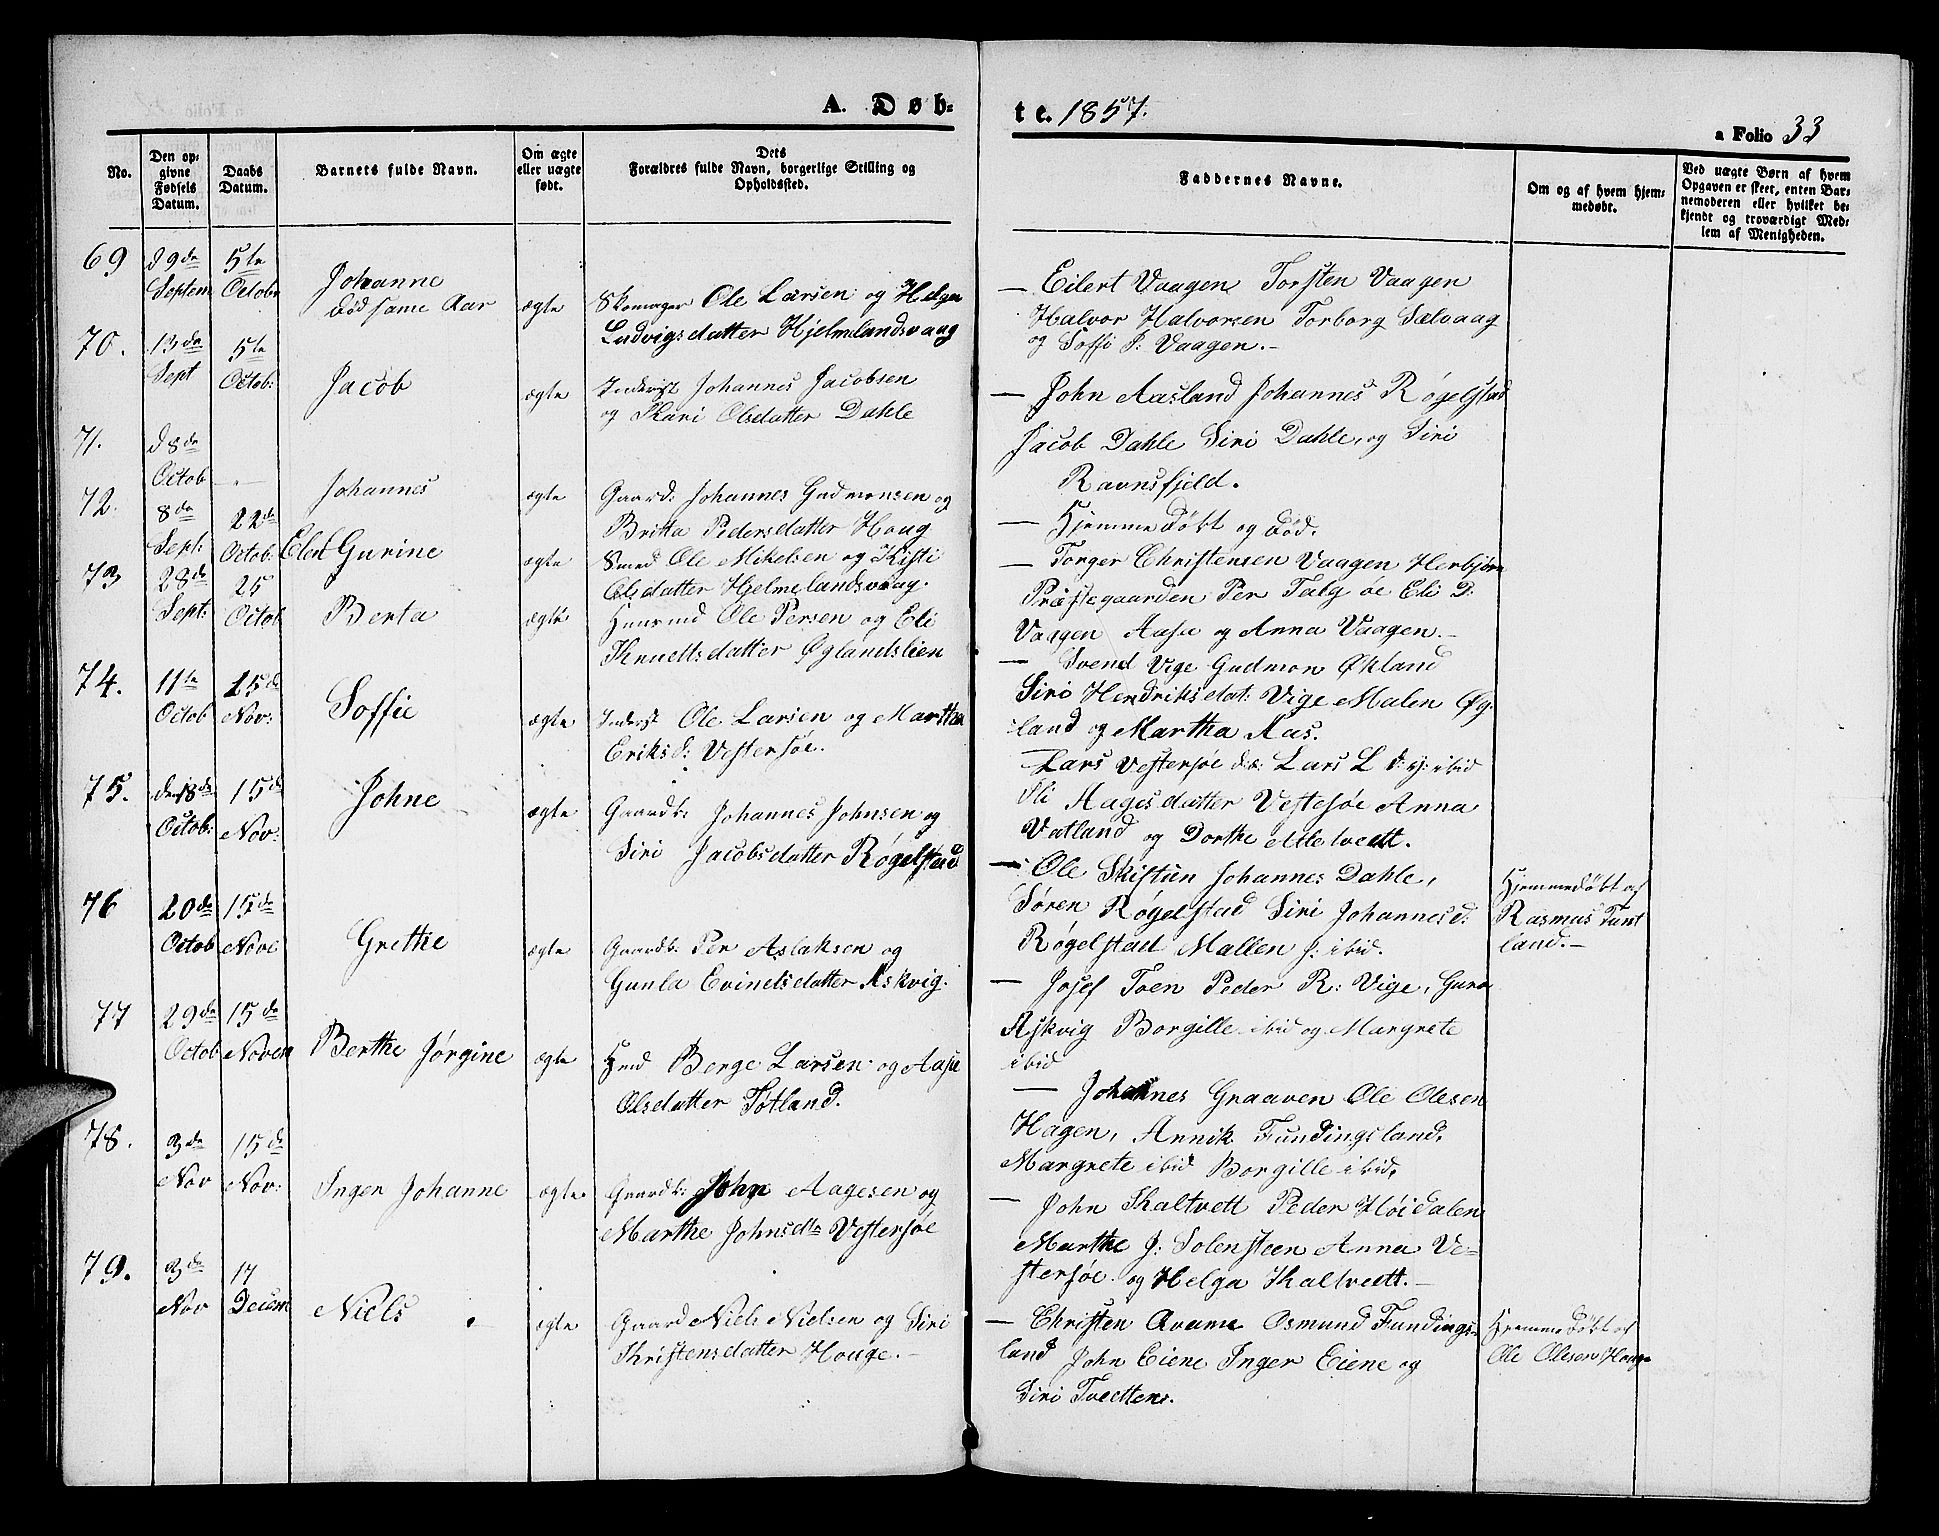 A. Døb-
te. 1857.
a Folio 33
No.
Den op-
givne
Fødsels
Datum.
Daabs
Datum.
Barnets fulde Navn.
Om ægte
eller uægte
født.
Dets
Forældres fulde Navn, borgerlige Stilling og
Opholdssted.
Faddernes Navne.
Om og af hvem hjem-
medøbt.
Ved uægte Børn af hvem
Opgaven er skeet, enten Bar-
nemoderen eller hvilket be-
kjendt og troværdigt Med-
lem af Menigheden.
69
d 9de
Septem
5te
Octobr
Johanne
død same Aar
ægte
Skomager Ole Larsen og Helga
Ludvigsdatter Hjelmlandsvaag
— Eilert Vaagen Torsten Vaagen
Halvor Halvorsen Torborg Sælvaag
og Soffi P: Vaagen.—
70.
13de
Sept
5te
Octob:
Jacob
ægte
Inderst Johannes Jacobsen
og Kari Olsdatter Dahle
— John Aasland Johannes Røgelstad
Jacob Dahle Siri Dahle, og Siri
Ravnsfjeld.
71.
d 8de
Octob
Johannes
ægte
Gaard: Johannes Gudmonsen og
Britta Pedersdatter Houg
— Hjemmedøbt og død.
72.
8de
Sept:
22de
Octob:
Elen Gurine
ægte
Smed Ole Mikelsen og Kisti
Olsdatter Hjelmelandsvaag.
— Torger Christensen Vaagen Herbjørn
Præstegaarden Per Talg øe Eli D.
Vaagen Aasa og Anna Vaagen.—
73
28de
Sept:
25
Octob
Berta
ægte
Huusmd Ole Persen og Eli
Knuttsdatter Øglandslien
— Svend Vige Gudmon Økland
Siri Hendriksdat: Vige Malen Øg-
land og Martha Aas.
74.
11te
Octob
15d
Nov:
Soffie
ægte
Inderst Ole Larsen og Martha
Eriksd: Vestersøe.
— Lars Vestersøe d:æ: Lars L d: y: ibid
Sli Aagesdatter Vestesøe Anna
Vatland og Dorthe Atletvedt.
75.
den 18de
Octob:
15d
Nov:
Johne
ægte
Gaardb: Johannes Johnsen og
Siri Jacobsdatter Røgelstad
— Ole Skiftun Johannes Dahle,
Søren Røgelstad Siri Johannesd:
Røgelstad Mallen J: ibid.
Hjemmedøbt af
Rasmus Tunt
land.—
76
20de
Octob
15de
Nove
Grethe
ægte
Gaardb: Per Aslaksen og
Gunla Evinetsdatter Askvig.
— Josef Toen Peder R: Vige, Guro
Askvig Borgille ibid og Margrete
ibid
77
29de
Octob
15de
Novem
Berthe Jørgine
ægte
Hmd Berge Larsen og Aasa
Olsdatter Tøtland.
— Johannes Graaven Ole Olesen
Hagen, Annik Fundingsland,
Margrete ibid Borgille ibid.
78.
3de
Nov
15de
Nov:
Inger Johanne
ægte
Gaardb: John Aagesen og
Marthe Johnsdtr Vestersøe
— John Kaltvett Peder Høidalen
Marthe J: Solensteen Anna Ve-
stersøe og Helga Kaltvedt.—
79.
3de
Nov
17
Decem
Niels
ægte
Gaard Niels Nielsen og Siri
Kristensdatter Houge.—
— Christen Avame Osmund Fundings-
land John Eiene Inger Eiene og
Siri Tveettene.
Hjemmedøbt af
Ole Olesen Houge